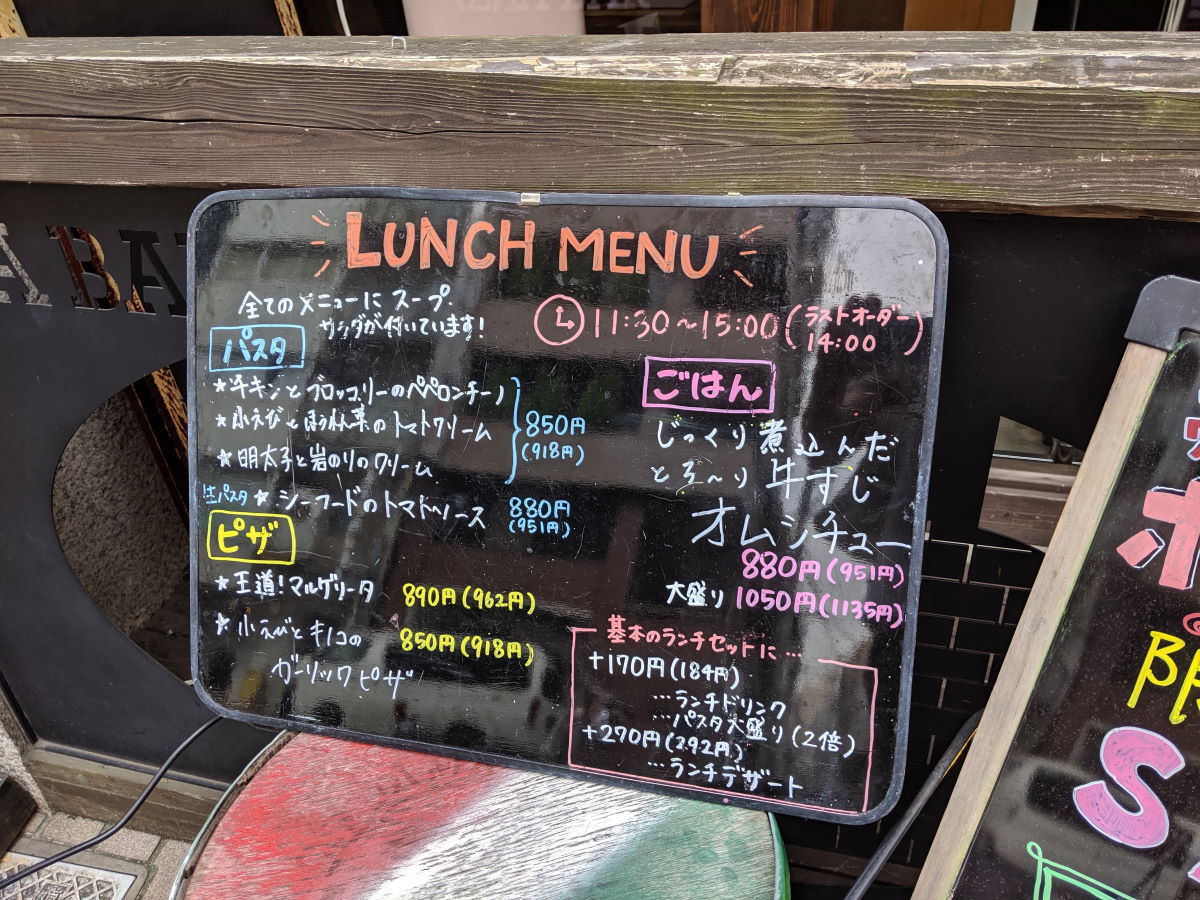 LUNCH MENU
全てのメニューに スープ・
サラダが付いています!
11:30~15:00(ラストオーダー 14:00)
パスタ
★チキンとブロッコリーのペペロンチーノ
★小えびとほうれん草のトマトクリーム
★明太子と岩のりのクリーム
850円
(918円)
生パスタ ★シーフードのトマトソース 880円
(951円)
ピザ
★王道!マルゲリータ 890円(962円)
★小えびとキノコの 850円(918円)
ガーリックピザ
ごはん
じっくり煮込んだ
とろ~り 牛すじ
オムシチュー
880円(951円)
大盛り 1050円(1135円)
基本のランチセットに…
+170円(184円)
…ランチドリンク
…パスタ大盛り(2倍)
+270円(292円)
…ランチデザート
A BA
S